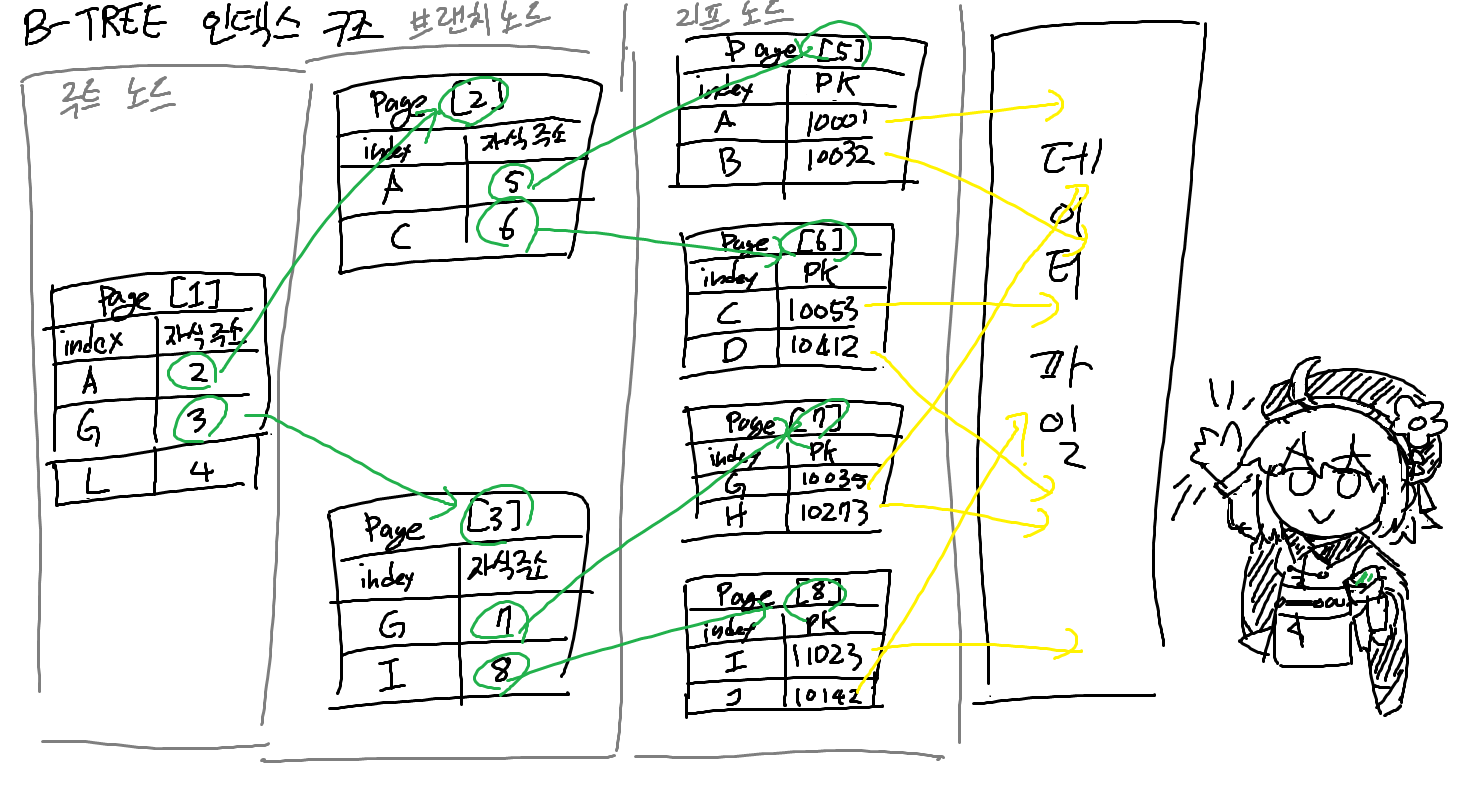 B-TREE 인덱스 구조
루트 노드
Page [1]
index 자식주소
A 2
G 3
L 4
브랜치노드
Page [2]
index 자식주소
A 5
C 6
Page [3]
index 자식주소
G 7
I 8
리프노드
Page [5]
index PK
A 10001
B 10032
Page [6]
index PK
C 10053
D 10412
Page [7]
index PK
G 10035
H 10273
Page [8]
index PK
I 11023
J 10142
데
이
터
파
일